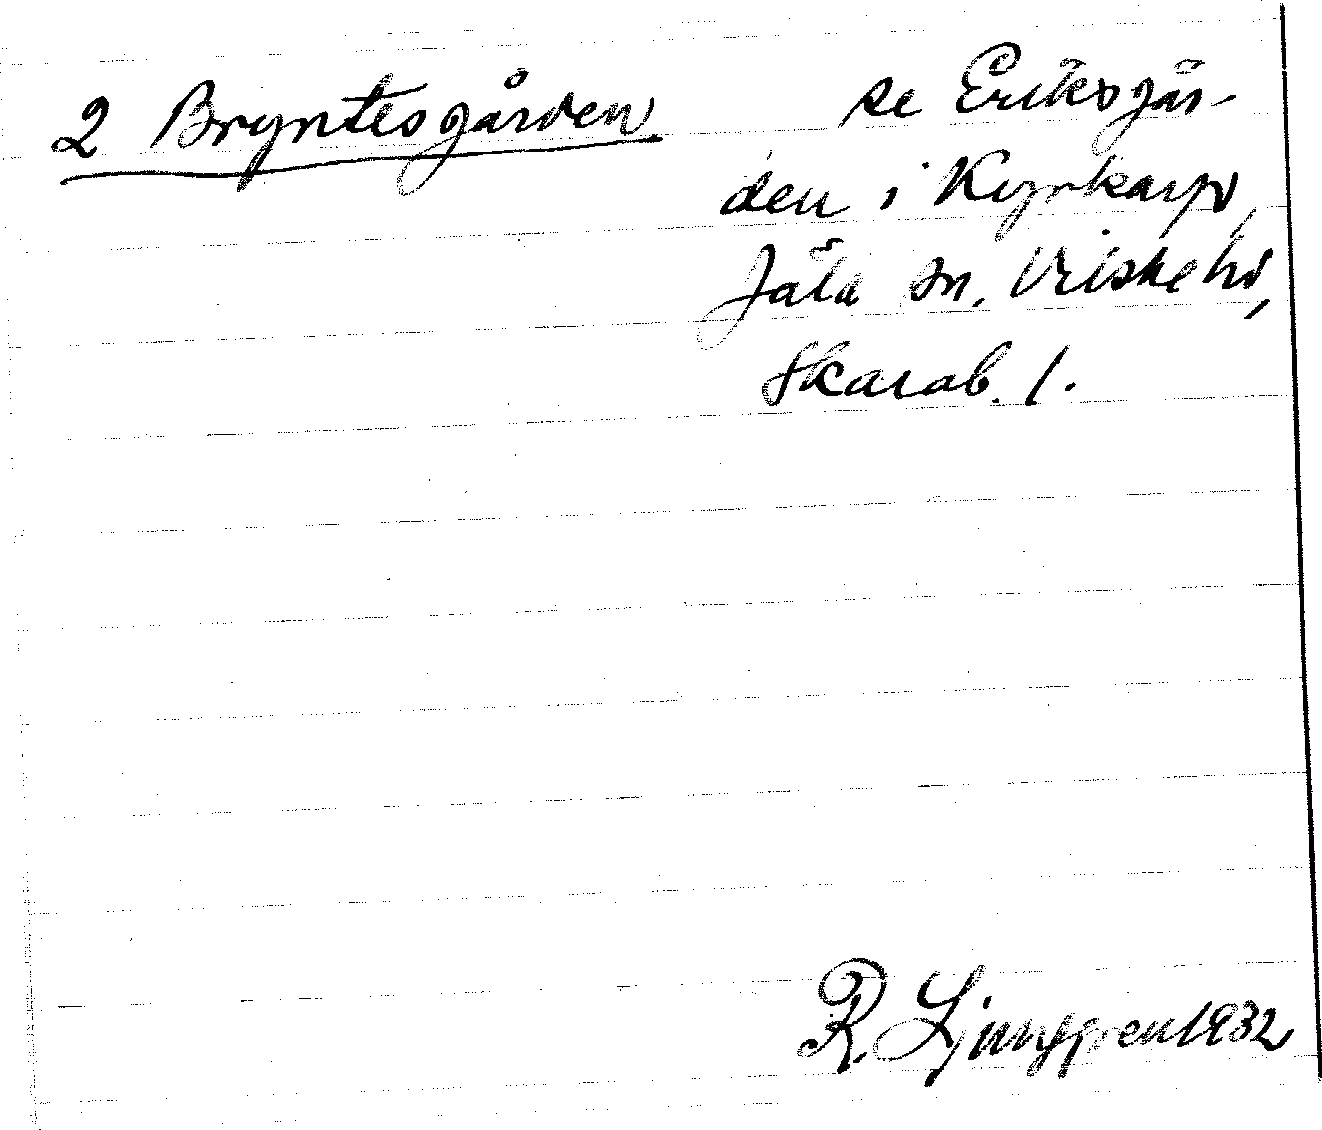 2 Bryntesgården se Eriksgår-
den i Kyrkarp,
Jäla sn, Vilske hd,
Skarab. l.
R. Ljunggren 1932